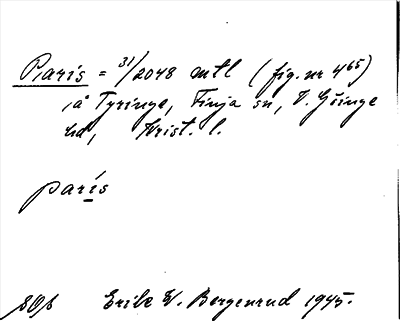 Paris = 31/2048 mtl (fig. nr 4⁶⁵)
på Tyringe, Finja sn, V. Göinge
hd, Krist. l.
parís
Erik W. Bergenrud 1945.